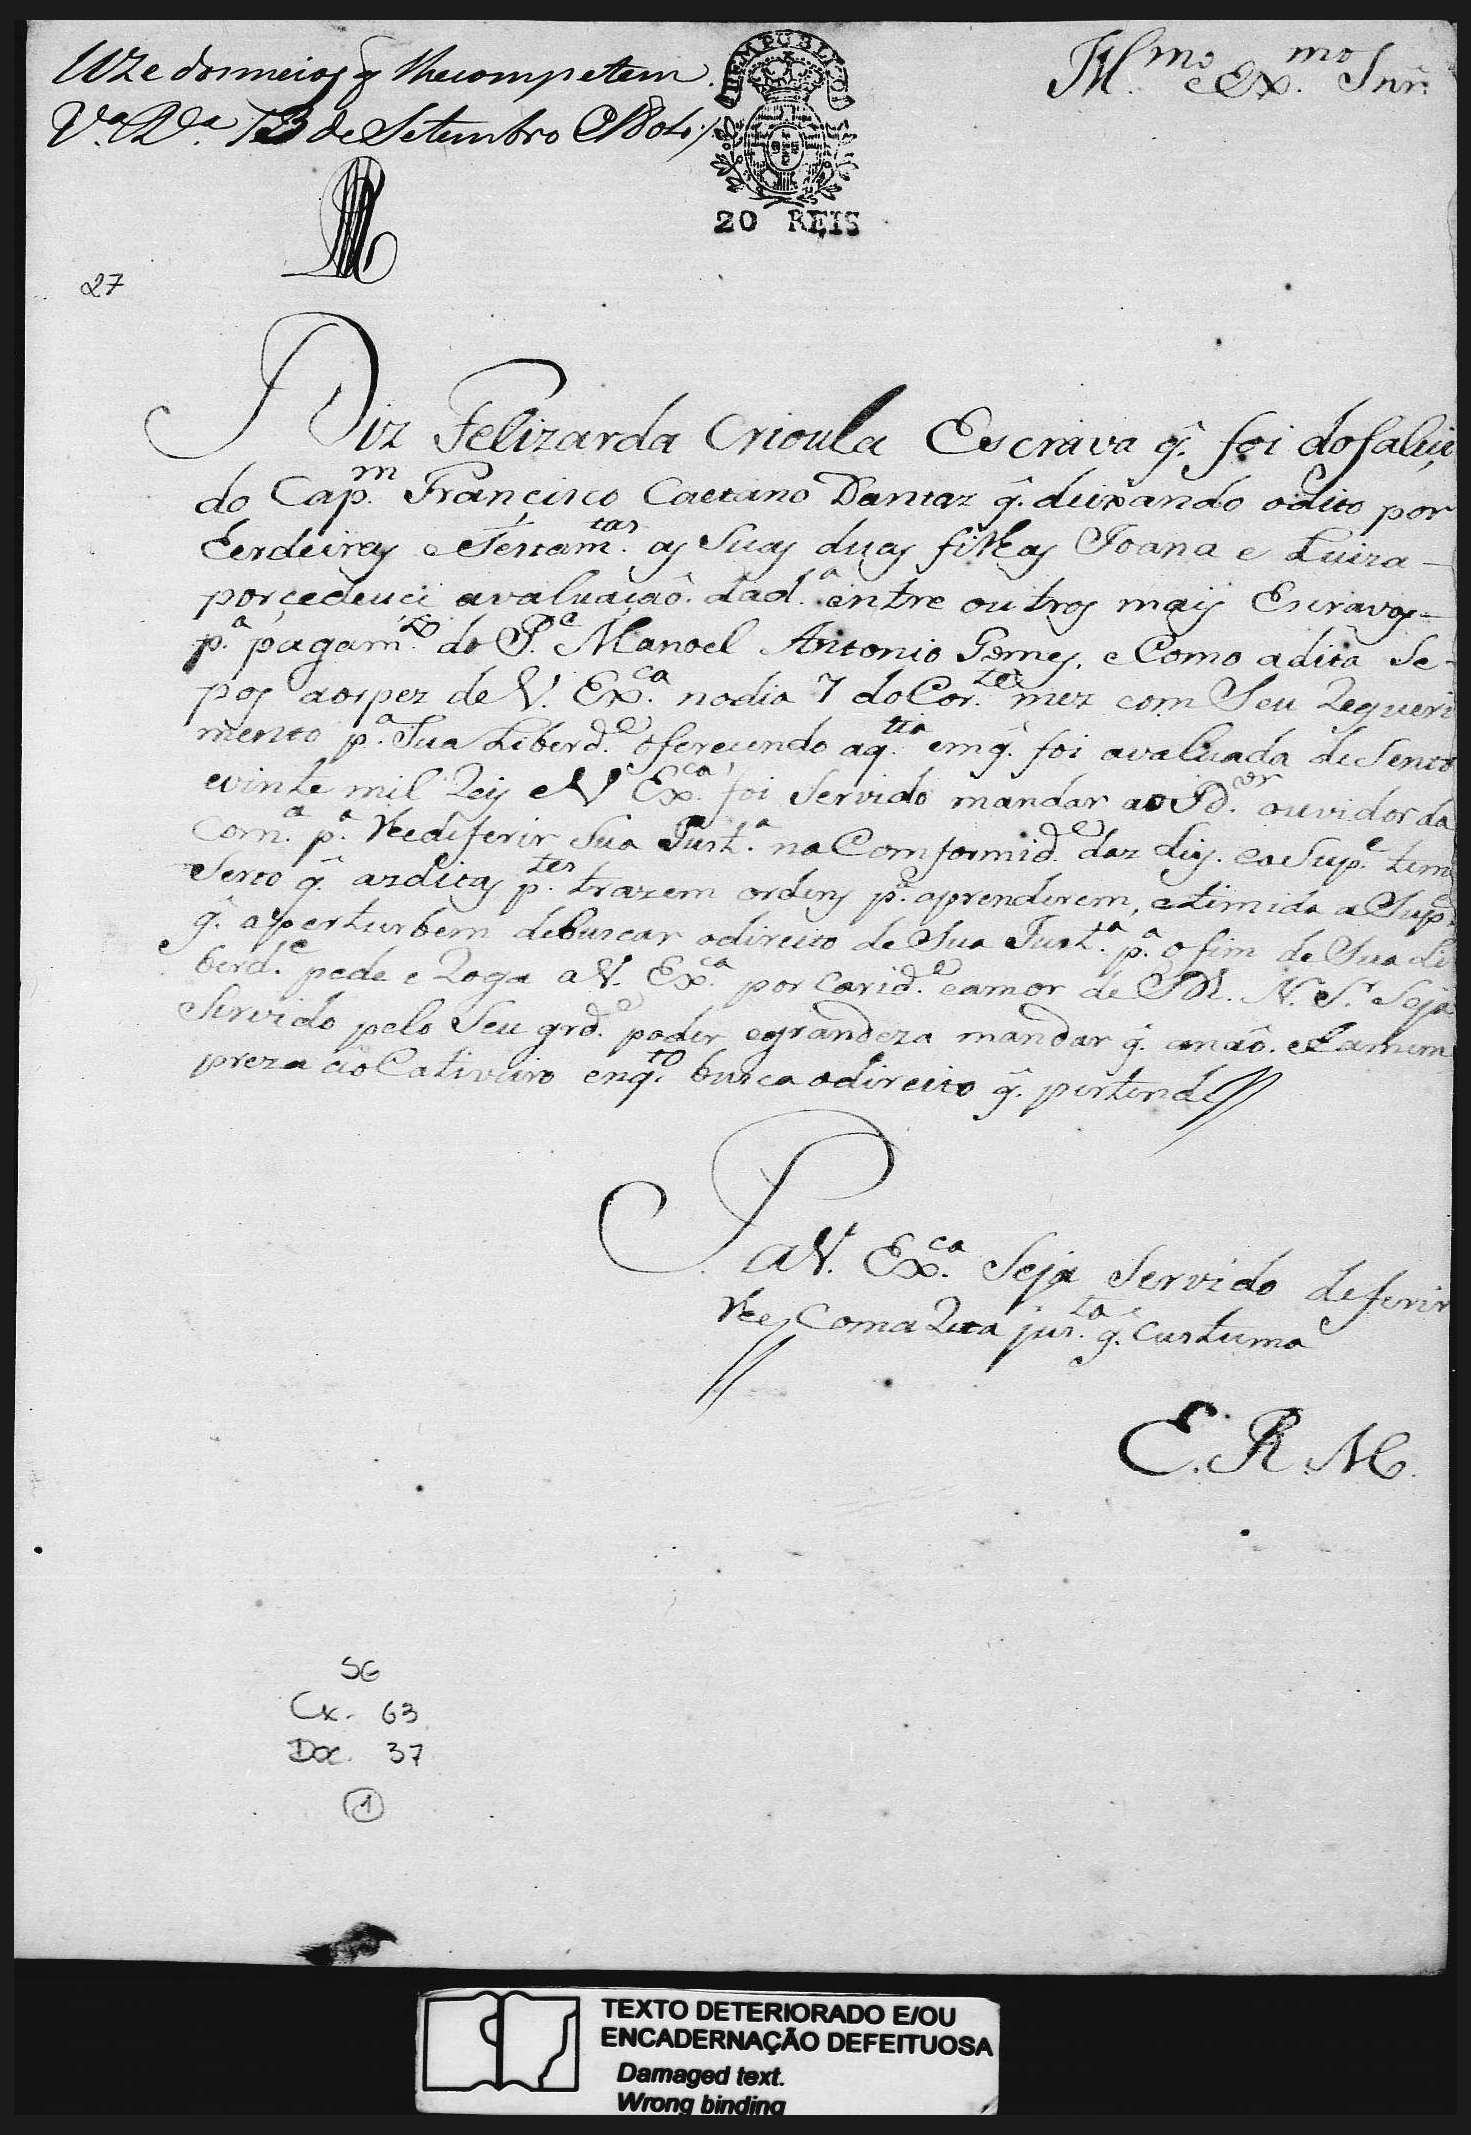 Uze dos meios q̃ lhe competem.
V.ª R.ª 13 de Setembro 1804
Ill.mo e Ex.mo Snr.
TEMPUBLITO
20 REIS
27
Diz Felizarda Crioula Escrava q̃. foi do faleçi
do Cap.m Françisco Caetano Dantaz q̃. deixando o dito por
Eerdeiras e Testam.tas as Suas duas filhas Joana e Luiza
por çedeuci avaluaçaõ. da d.ª entre outros mais Escravos
p.ª pagam.to do P.e Manoel Antonio Gomes, e Como a dita Se
pos aos pez de V. Ex.ca no dia 7 do Cor.te mez com Seu Requeri
mento p.ª Sua Liberd.e ofereçendo a q.tia em q̃. foi avaluada de Sento
e vinte mil Reis e V Ex.ca foi Servido mandar ao D.or ouvidor da
Com.ª p.ª lhe diferir Sua Just.ª na Comformid.e daz Leis. e a Sup.e tem
Serto q̃. as ditas p.tes trazem ordens p.ª aprenderem, e timida a Sup.e
q̃. a perturbem de buscar o direito de Sua Just.ª p.ª o fim de Sua Li
berd.e pede e Roga a V. Ex.ca por Carid.e e amor de M. N. S.r Seja
Servido pelo Seu grd.e poder e grandeza mandar q̃. a naõ. chamem
preza ao Cativeiro enq.to busca o direito q̃. pertende
P. a V. Ex.ca Seja Servido deferir
lhe Coma Reta jus.ta q̃. Custuma
E. R. M.
SG
Cx. 63
Doc. 37
1
TEXTO DETERIORADO E/OU
ENCADERNAÇÃO DEFEITUOSA
Damaged text.
Wrong binding